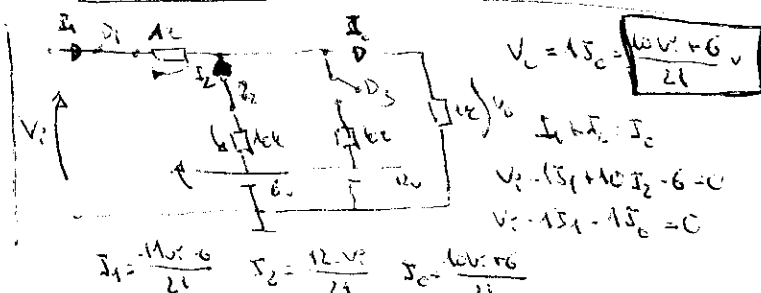 I₁ D₁ 1k I₀
I₂ D₃
Vi 1k V₀
6v 12v
V₀ = 1I₀ = 10Vi+6/21 v
I₁ + I₂ = I₀
Vi - 1I₁ + 10I₂ - 6 = 0
Vi - 1I₁ - 1I₀ = 0
I₁ = 11Vi-6/21 I₂ = 12-Vi/21 I₀ = 10Vi+6/21